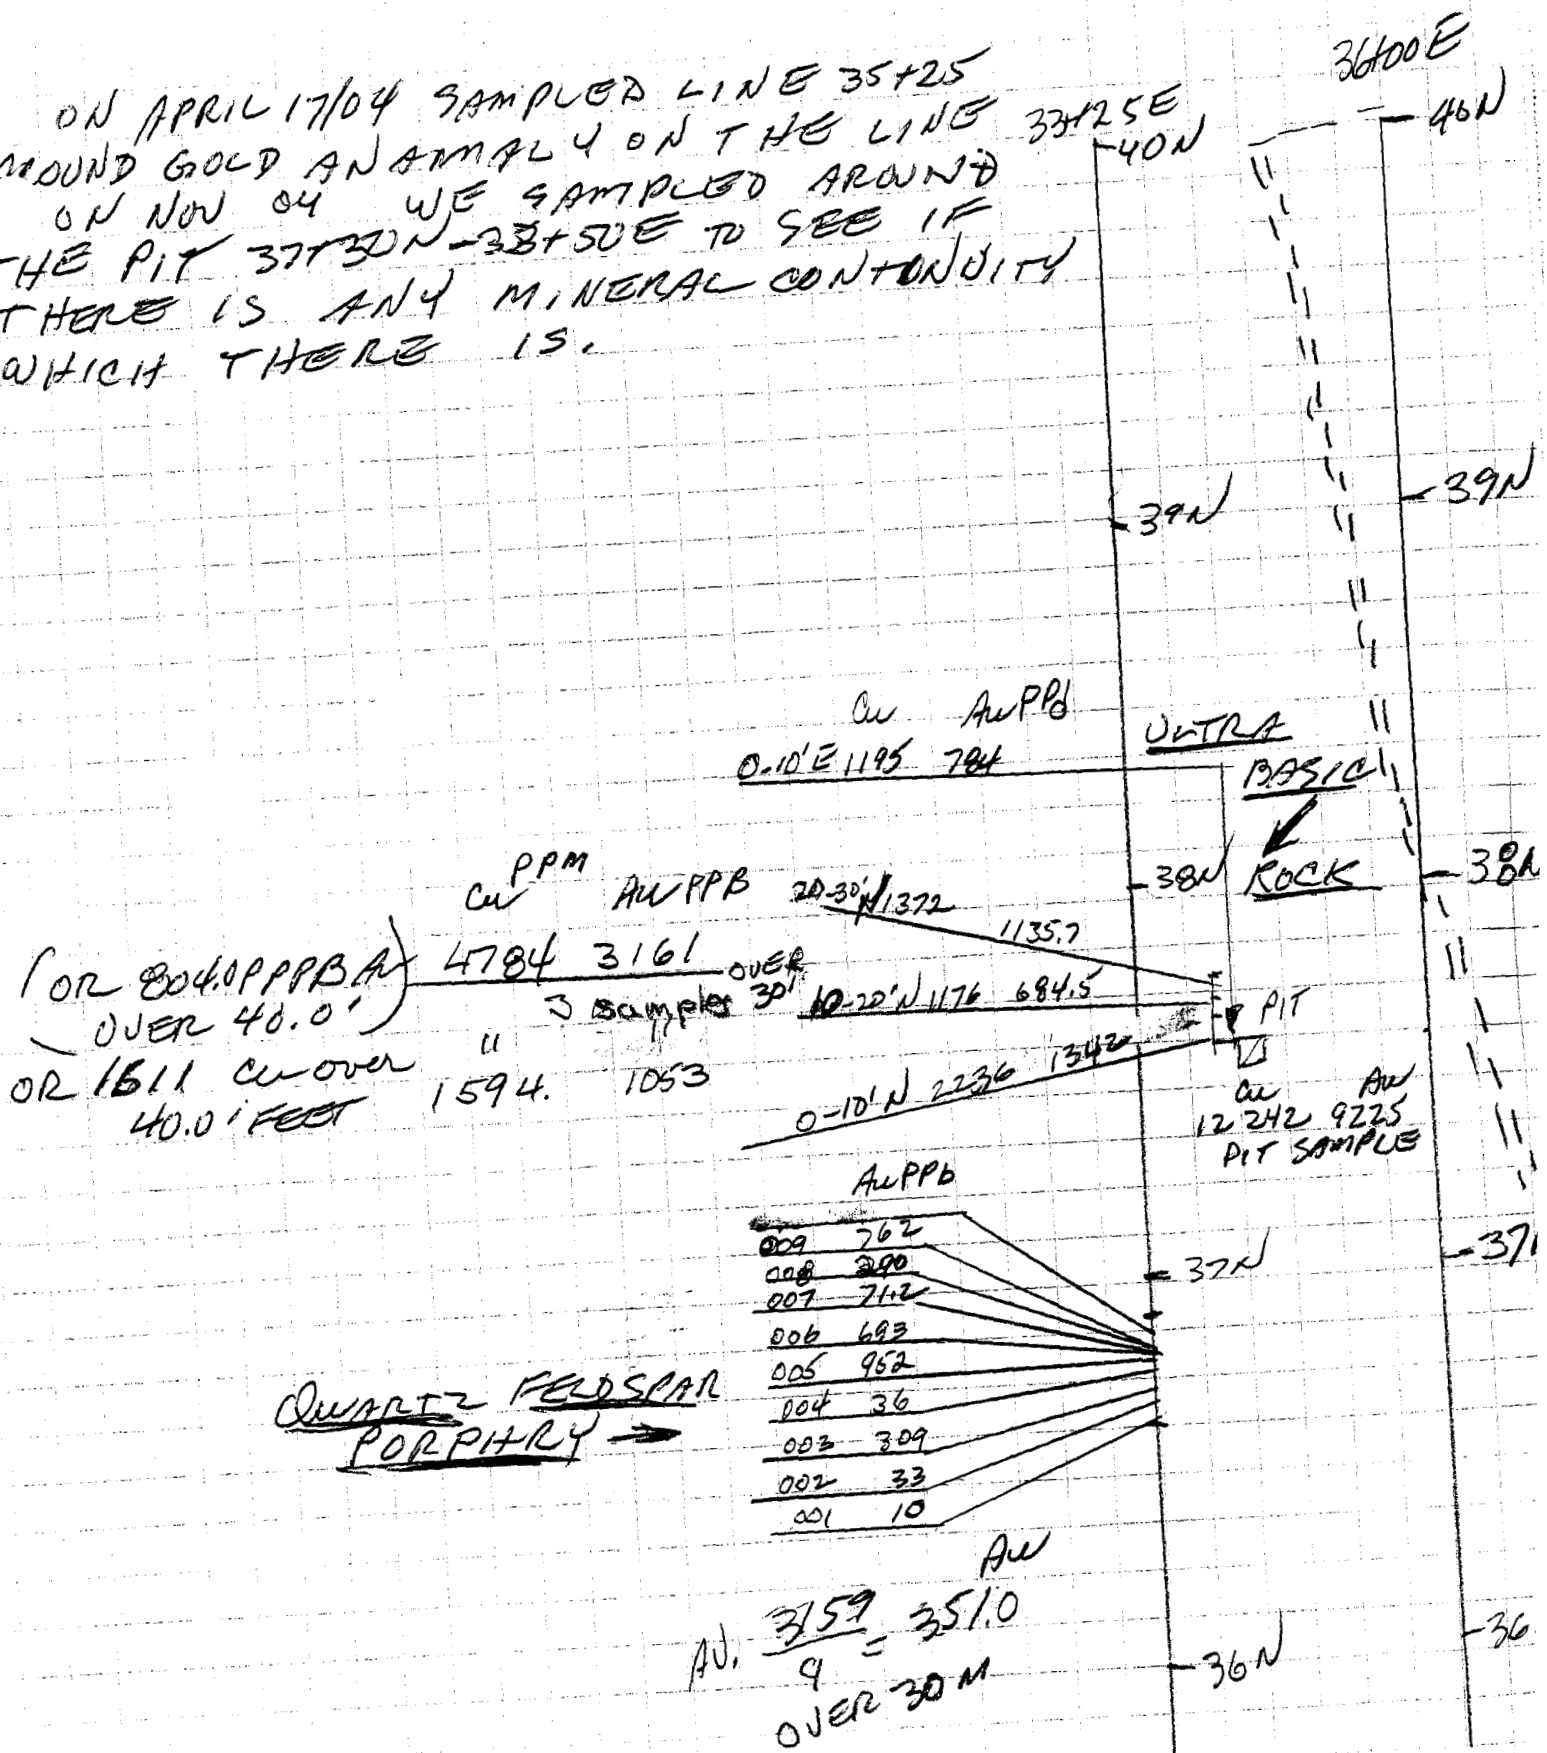 ON APRIL 17/04 SAMPLED LINE 35+25
GOLD ANAMALY ON THE LINE
ON NOV 04 WE SAMPLED AROUND
THE PIT 37+30N - + 50E TO SEE IF
THERE IS ANY MINERAL CONTONUITY
WHICH THERE IS.
36+00E
33+25E
40N
40N
39N
39N
Cu Au PPb
0-10'E 1195 784
ULTRA
BASIC
ROCK
38N
38N
PPM
Cu Au PPB
20-30'N 1372 1135.7
(OR 804.0 PPPB Au) 4784 3161 OVER
OVER 40.0' 3 samples 30'
10-20'N 1176 684.5
PIT
OR 1611 Cu over " 1594. 1053
40.0' FEET
0-10'N 2236 1342
Cu Au
12 242 9225
PIT SAMPLE
Au PPb
009 762
008 290
007 71.2
006 693
005 952
004 36
003 309
002 33
001 10
37N
37
QUARTZ FELDSPAR
PORPHRY
Au
AV. 3159 / 9 = 351.0
OVER 30 M
36N
36